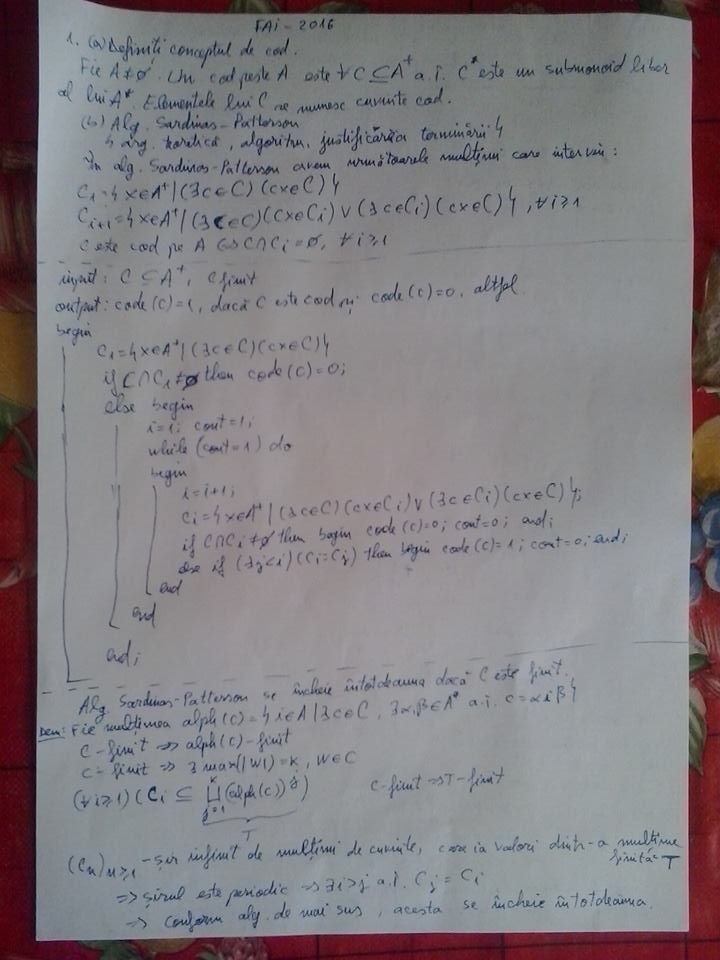 FAI - 2016
1. (a) Definiți conceptul de cod.
Fie A ≠ ∅. Un cod peste A este ∀ C ⊆ A⁺ a.î. C* este un submonoid liber
al lui A*. Elementele lui C se numesc cuvinte cod.
(b) Alg. Sardinas-Patterson
{ arg. teoretică, algoritm, justificarea terminării }
În alg. Sardinas-Patterson avem următoarele mulțimi care intervin:
C₁ = {x∈A⁺ | (∃c∈C)(cx∈C)}
Cᵢ₊₁ = {x∈A⁺ | (∃c∈C)(cx∈Cᵢ) ∨ (∃c∈Cᵢ)(cx∈C)}, ∀i≥1
C este cod pe A ⇔ C∩Cᵢ = ∅, ∀i≥1
input: C ⊆ A⁺, C finit
output: code(C)=1, dacă C este cod și code(C)=0, altfel.
begin
C₁ = {x∈A⁺ | (∃c∈C)(cx∈C)}
if C∩C₁ ≠ ∅ then code(C)=0;
else begin
i=1; cont=1;
while (cont=1) do
begin
i=i+1;
Cᵢ = {x∈A⁺ | (∃c∈C)(cx∈Cᵢ) ∨ (∃c∈Cᵢ)(cx∈C)};
if C∩Cᵢ ≠ ∅ then begin code(C)=0; cont=0; end;
else if (∃j<i)(Cᵢ=Cⱼ) then begin code(C)=1; cont=0; end;
end
end
end;
Alg. Sardinas-Patterson se încheie întotdeauna dacă C este finit.
Dem: Fie mulțimea alph(C) = {i∈A | ∃c∈C, ∃α,β∈A* a.î. c=αiβ}
C-finit ⇒ alph(C)-finit
C-finit ⇒ ∃ max(|w|)=k, w∈C
(∀i≥1)(Cᵢ ⊆ ⋃ⱼ₌₁ᵏ (alph(C))ʲ) C-finit ⇒ T-finit
T
(Cₙ)ₙ≥₁ - șir infinit de mulțimi de cuvinte, care ia valori dintr-o mulțime
finită T
⇒ șirul este periodic ⇒ ∃i>j a.î. Cⱼ = Cᵢ
⇒ conform alg. de mai sus, acesta se încheie întotdeauna.